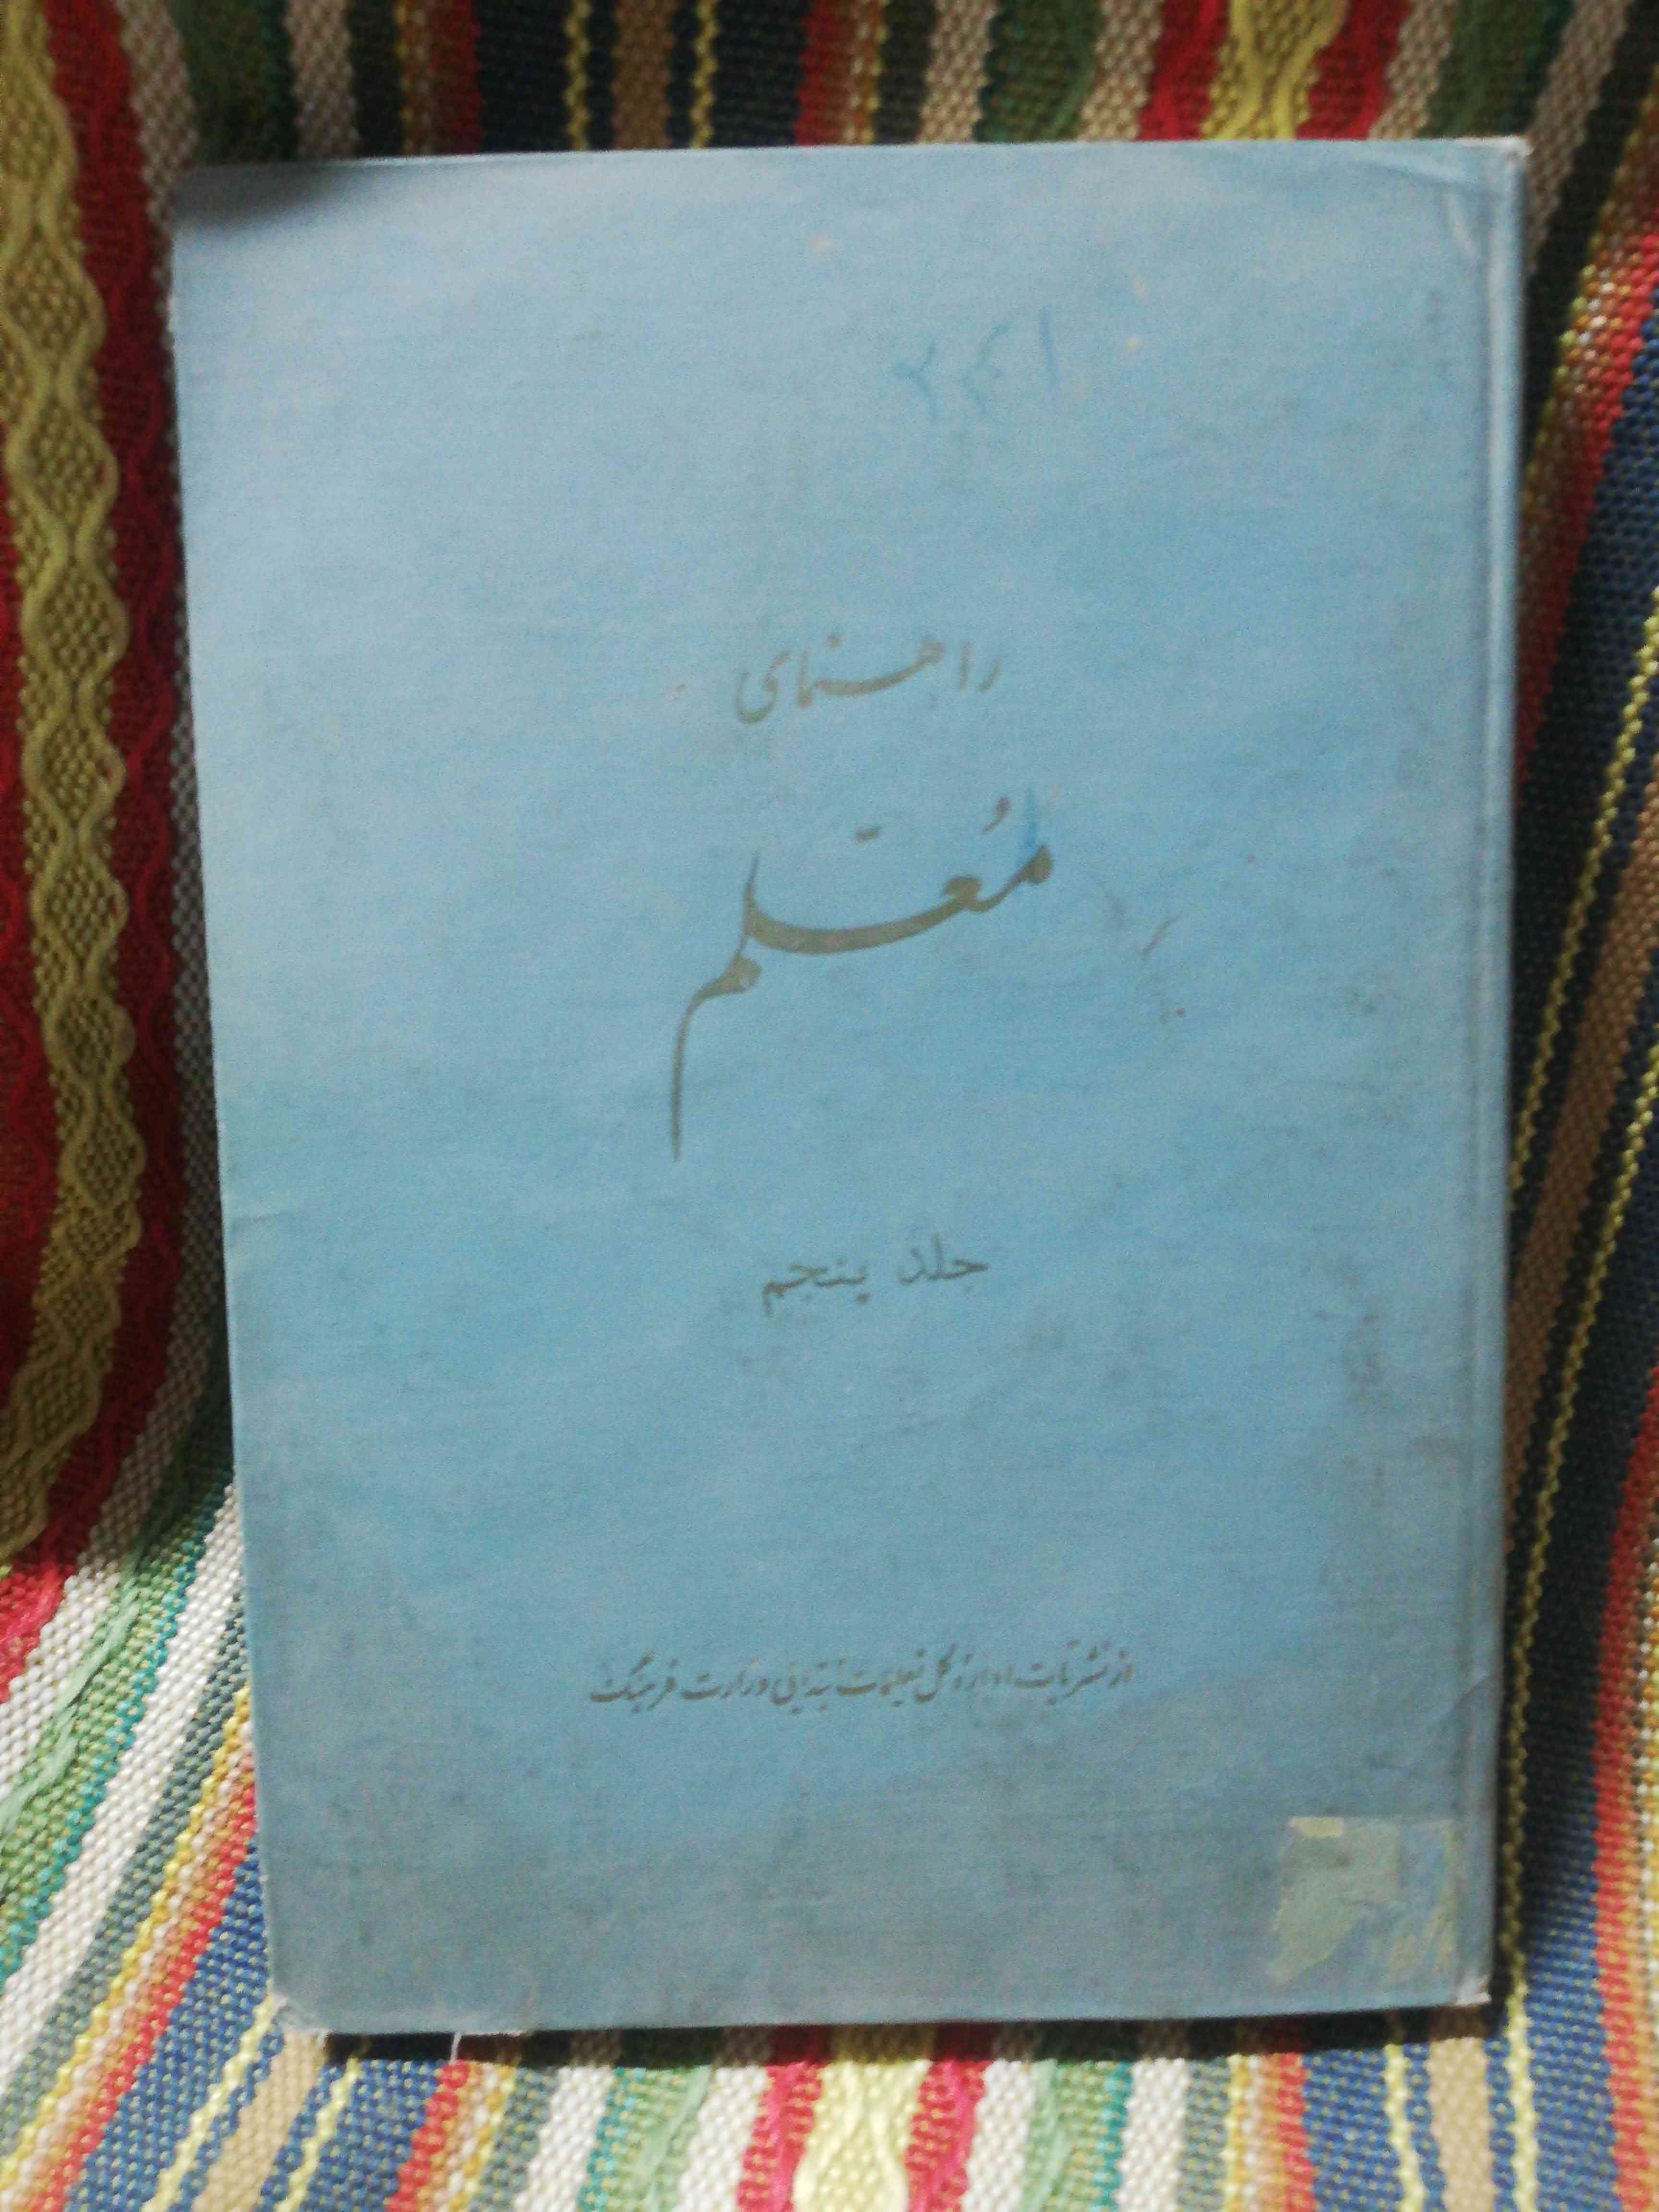 راهنمای
مُعلّم
جلد پنجم
از نشریات اداره کل تعلیمات ابتدایی وزارت فرهنگ